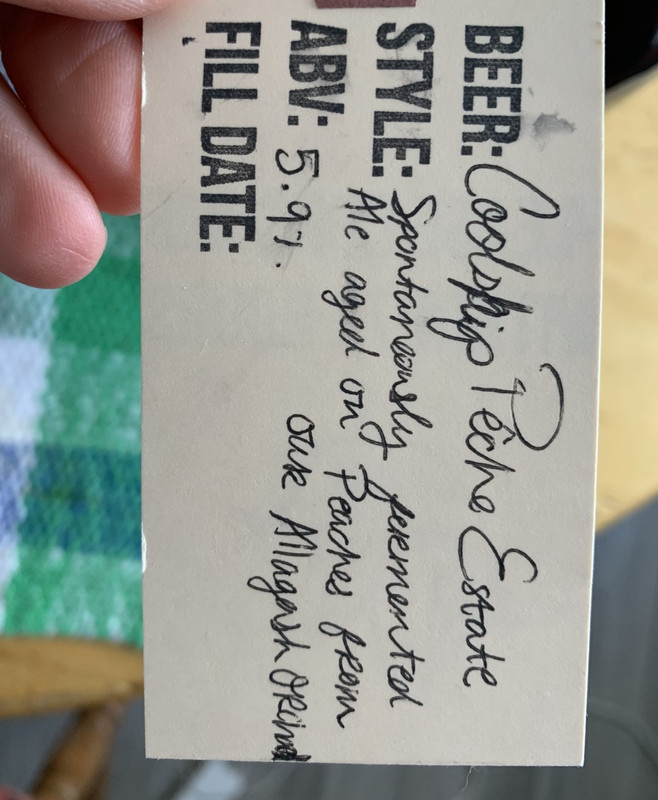 BEER: Coolship Pêche Estate
STYLE: Spontaneously fermented
Ale aged on Peaches from
ABV: 5.9%. our Allagash
FILL DATE: